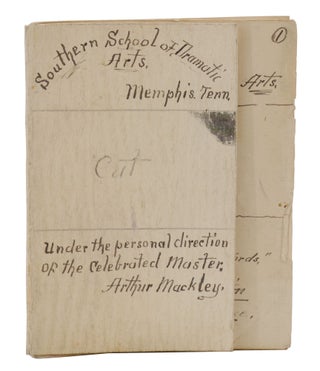 Southern School of Dramatic
Arts.
Memphis. Tenn.
Cut
Under the personal direction
of the Celebrated Master,
Arthur Mackley.
1
Arts.